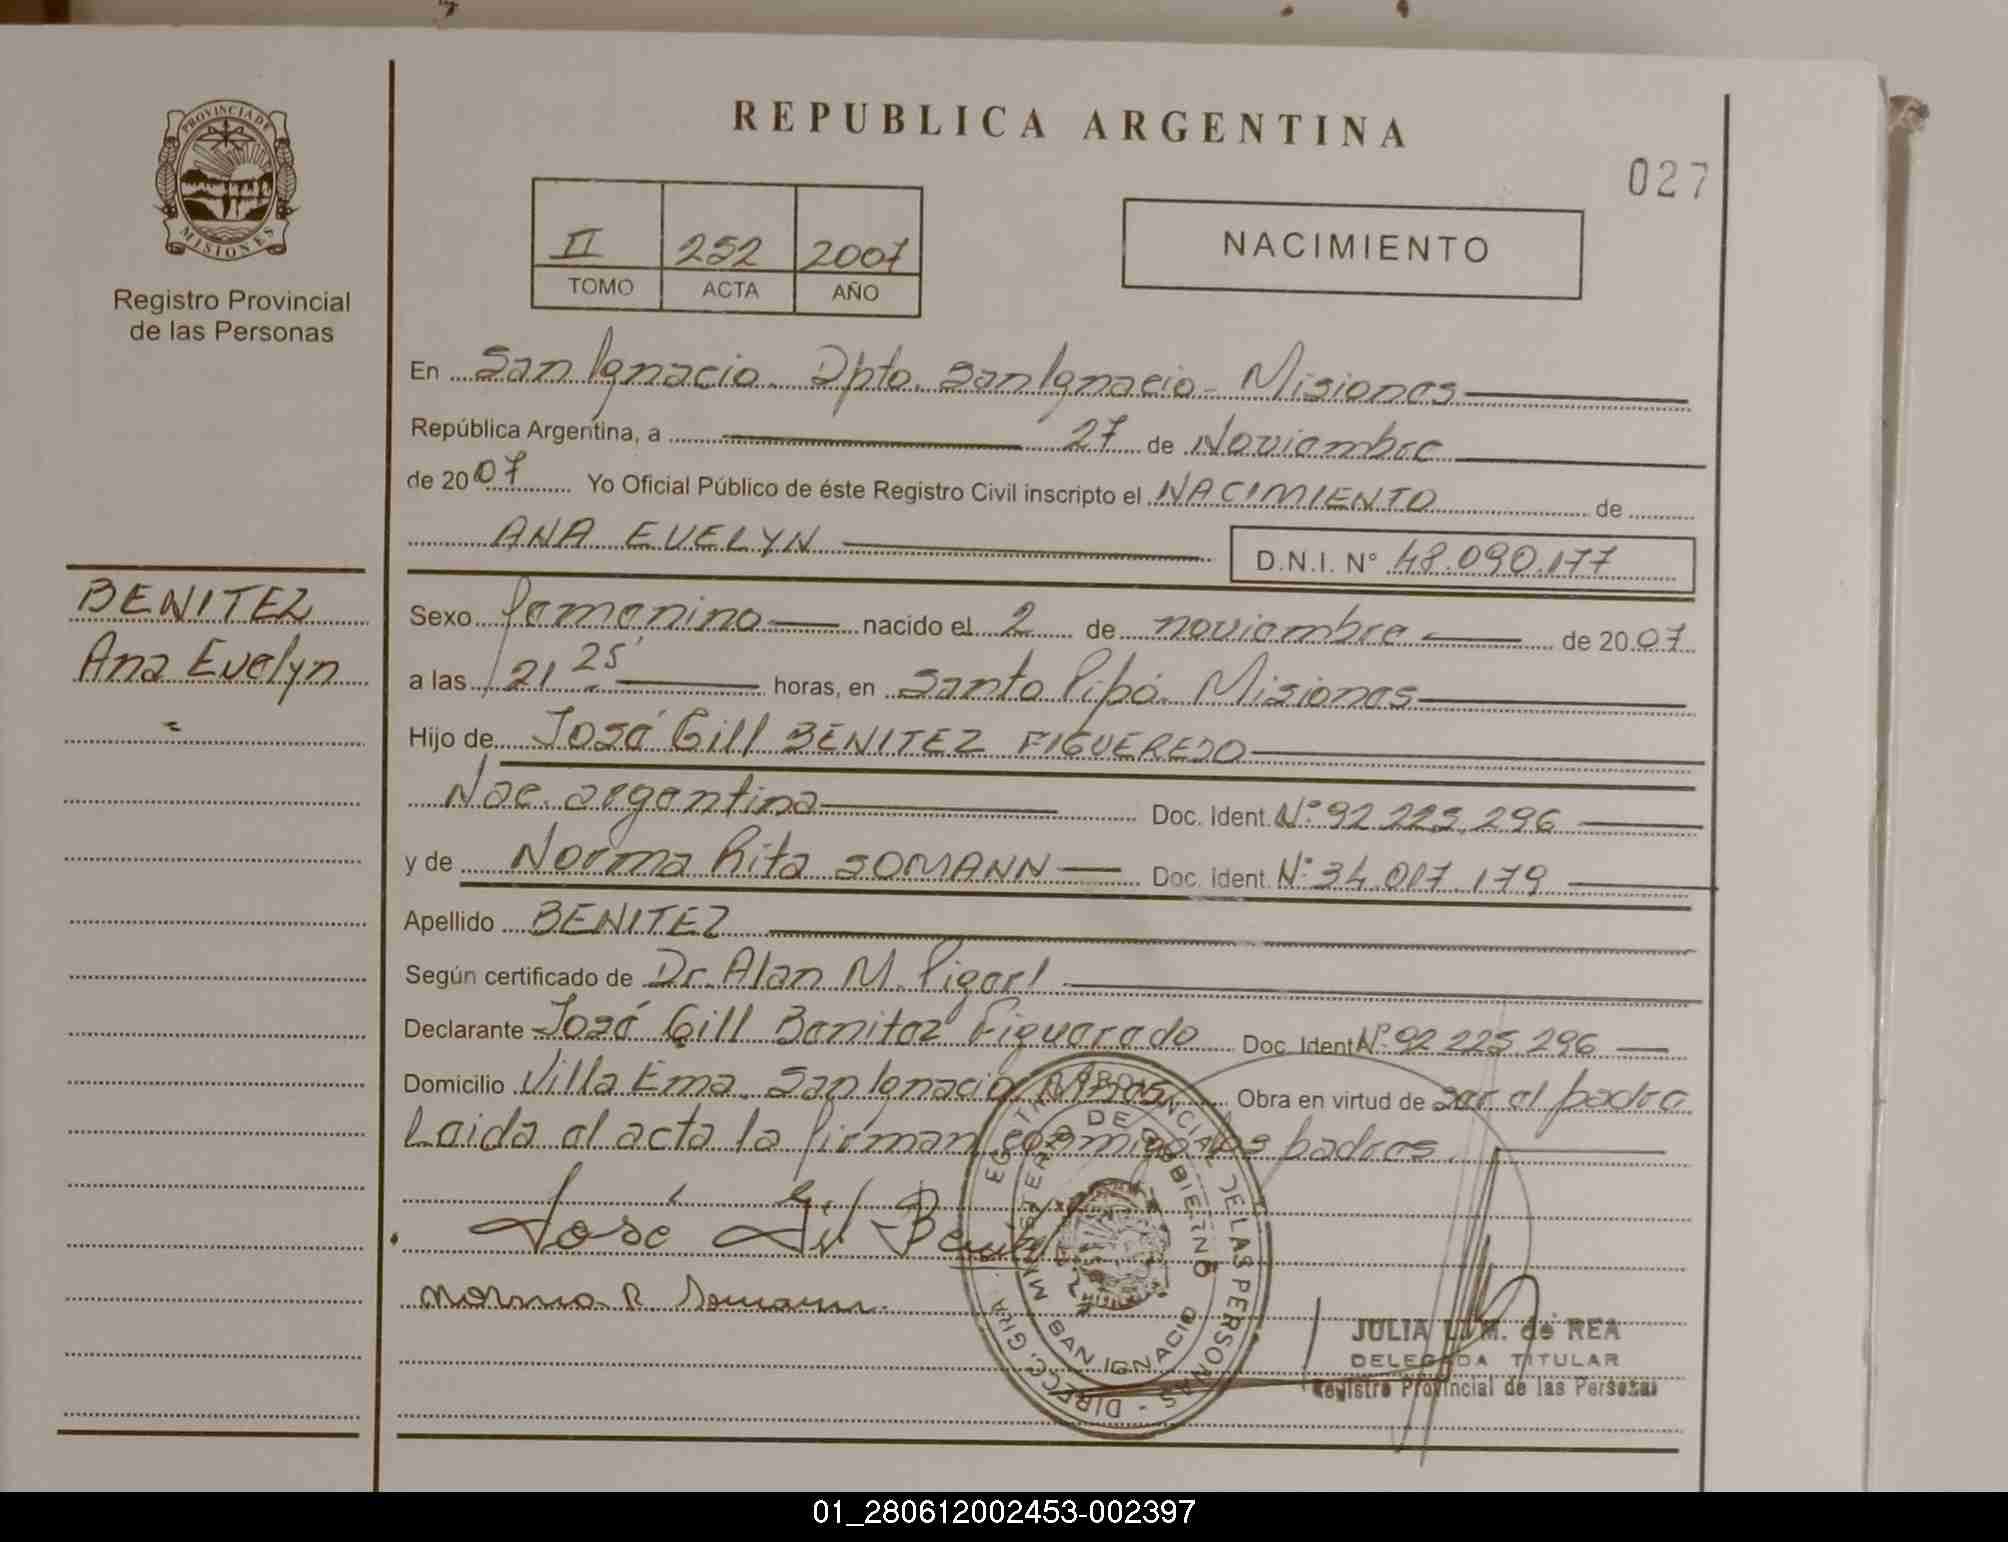 PROVINCIA DE
MISIONES
Registro Provincial
de las Personas
BENITEZ
Ana Evelyn
REPUBLICA ARGENTINA
027
II 252 2007
TOMO ACTA AÑO
NACIMIENTO
En San Ignacio. Dpto. San Ignacio - Misiones
República Argentina, a 27 de Noviembre
de 2007 Yo Oficial Público de éste Registro Civil inscripto el NACIMIENTO de
ANA EVELYN D.N.I. N° 48.090.177
Sexo femenino nacido el 2 de noviembre de 2007
a las 21 25' horas, en Santo Pipó. Misiones
Hijo de José Gill BENITEZ FIGUEREDO
Nac. argentina Doc. Ident. N° 92.225.296
y de Norma Rita SOMANN Doc. Ident. N° 34.017.179
Apellido BENITEZ
Según certificado de Dr. Alan M.
Declarante José Gill Benitez Figueredo Doc. Ident N° 92.225.296
Domicilio Villa Ema. San Ignacio Mnes. Obra en virtud de ser el padre
Leida el acta la firman conmigo los padres.
José Gil Benitez
Norma R Somann.
REGISTRO PROVINCIAL DE LAS PERSONAS - DIRECC. GRAL.
MINISTERIO DE GOBIERNO
SAN IGNACIO
JULIA M. de REA
DELEGADA TITULAR
Registro Provincial de las Personas
01_280612002453-002397